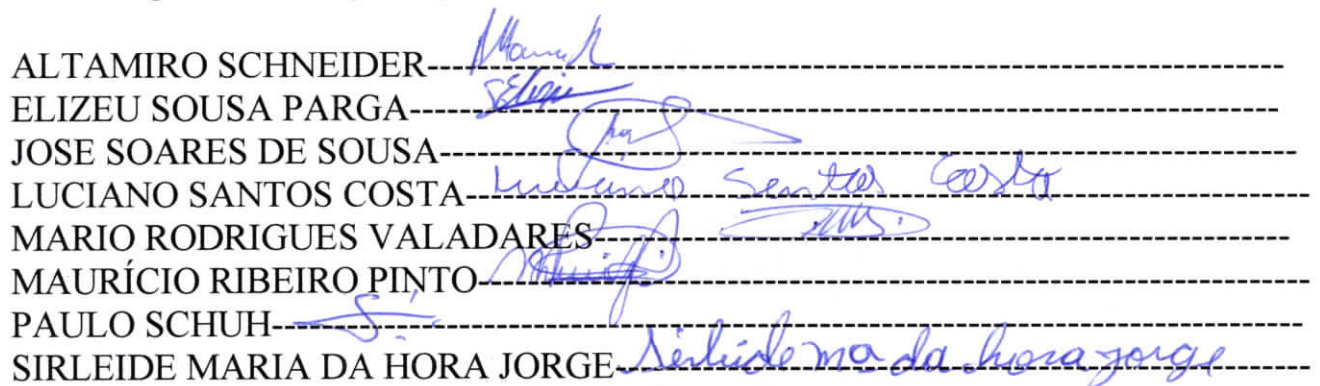 ALTAMIRO SCHNEIDER
ELIZEU SOUSA PARGA
JOSE SOARES DE SOUSA
LUCIANO SANTOS COSTA Luciano Santos Costa
MARIO RODRIGUES VALADARES
MAURÍCIO RIBEIRO PINTO
PAULO SCHUH
SIRLEIDE MARIA DA HORA JORGE Sirleide ma da hora jorge